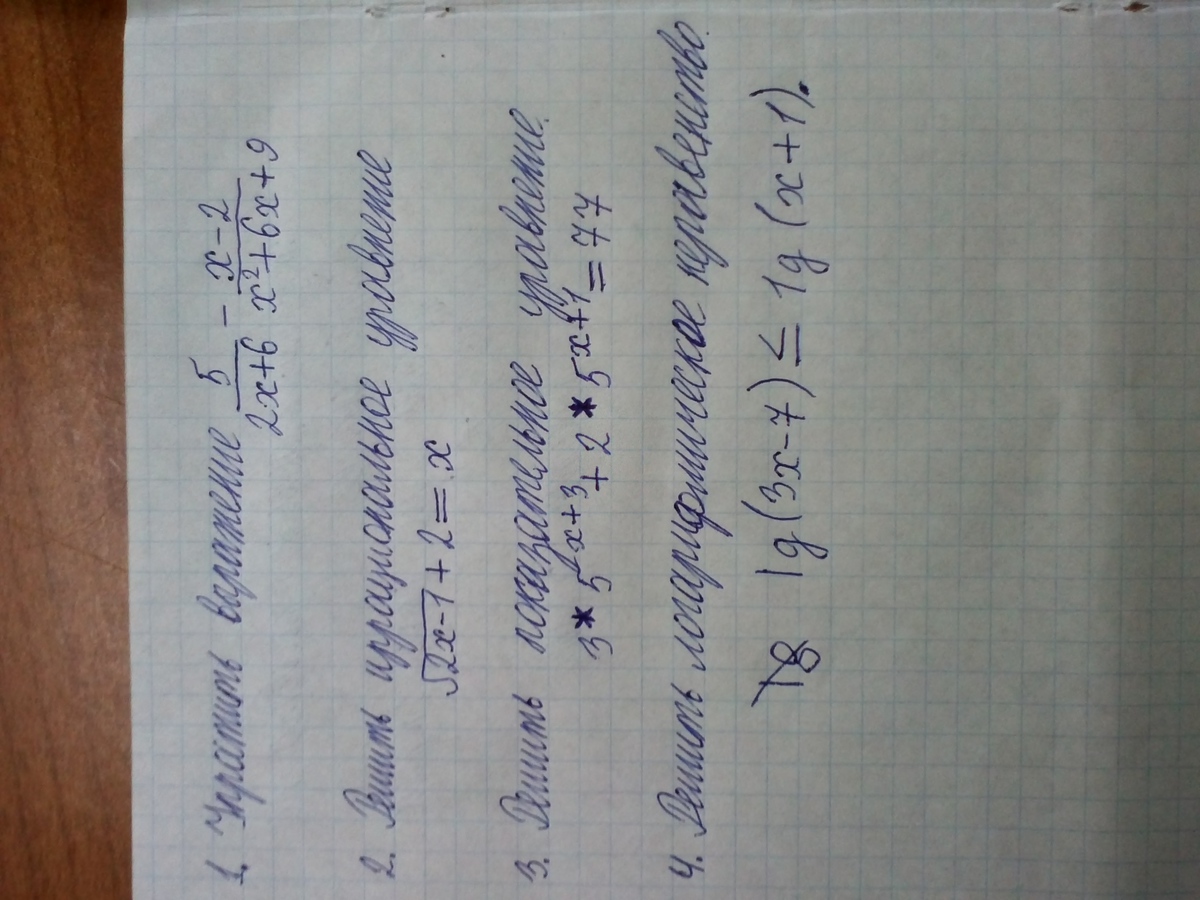 1. Упростить выражение 5/(2x+6) - (x-2)/(x²+6x+9)
2. Решить иррациональное уравнение
√(2x-1) + 2 = x
3. Решить показательное уравнение.
3*5^(x+3) + 2*5^(x+1) = 77
4. Решить логарифмическое неравенство.
lg(3x-7) ≤ lg(x+1).